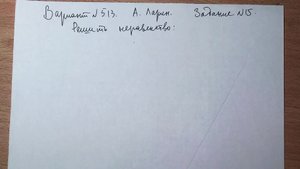 Вариант №513. А. Ларин. Задание №15.
Решить неравенство: